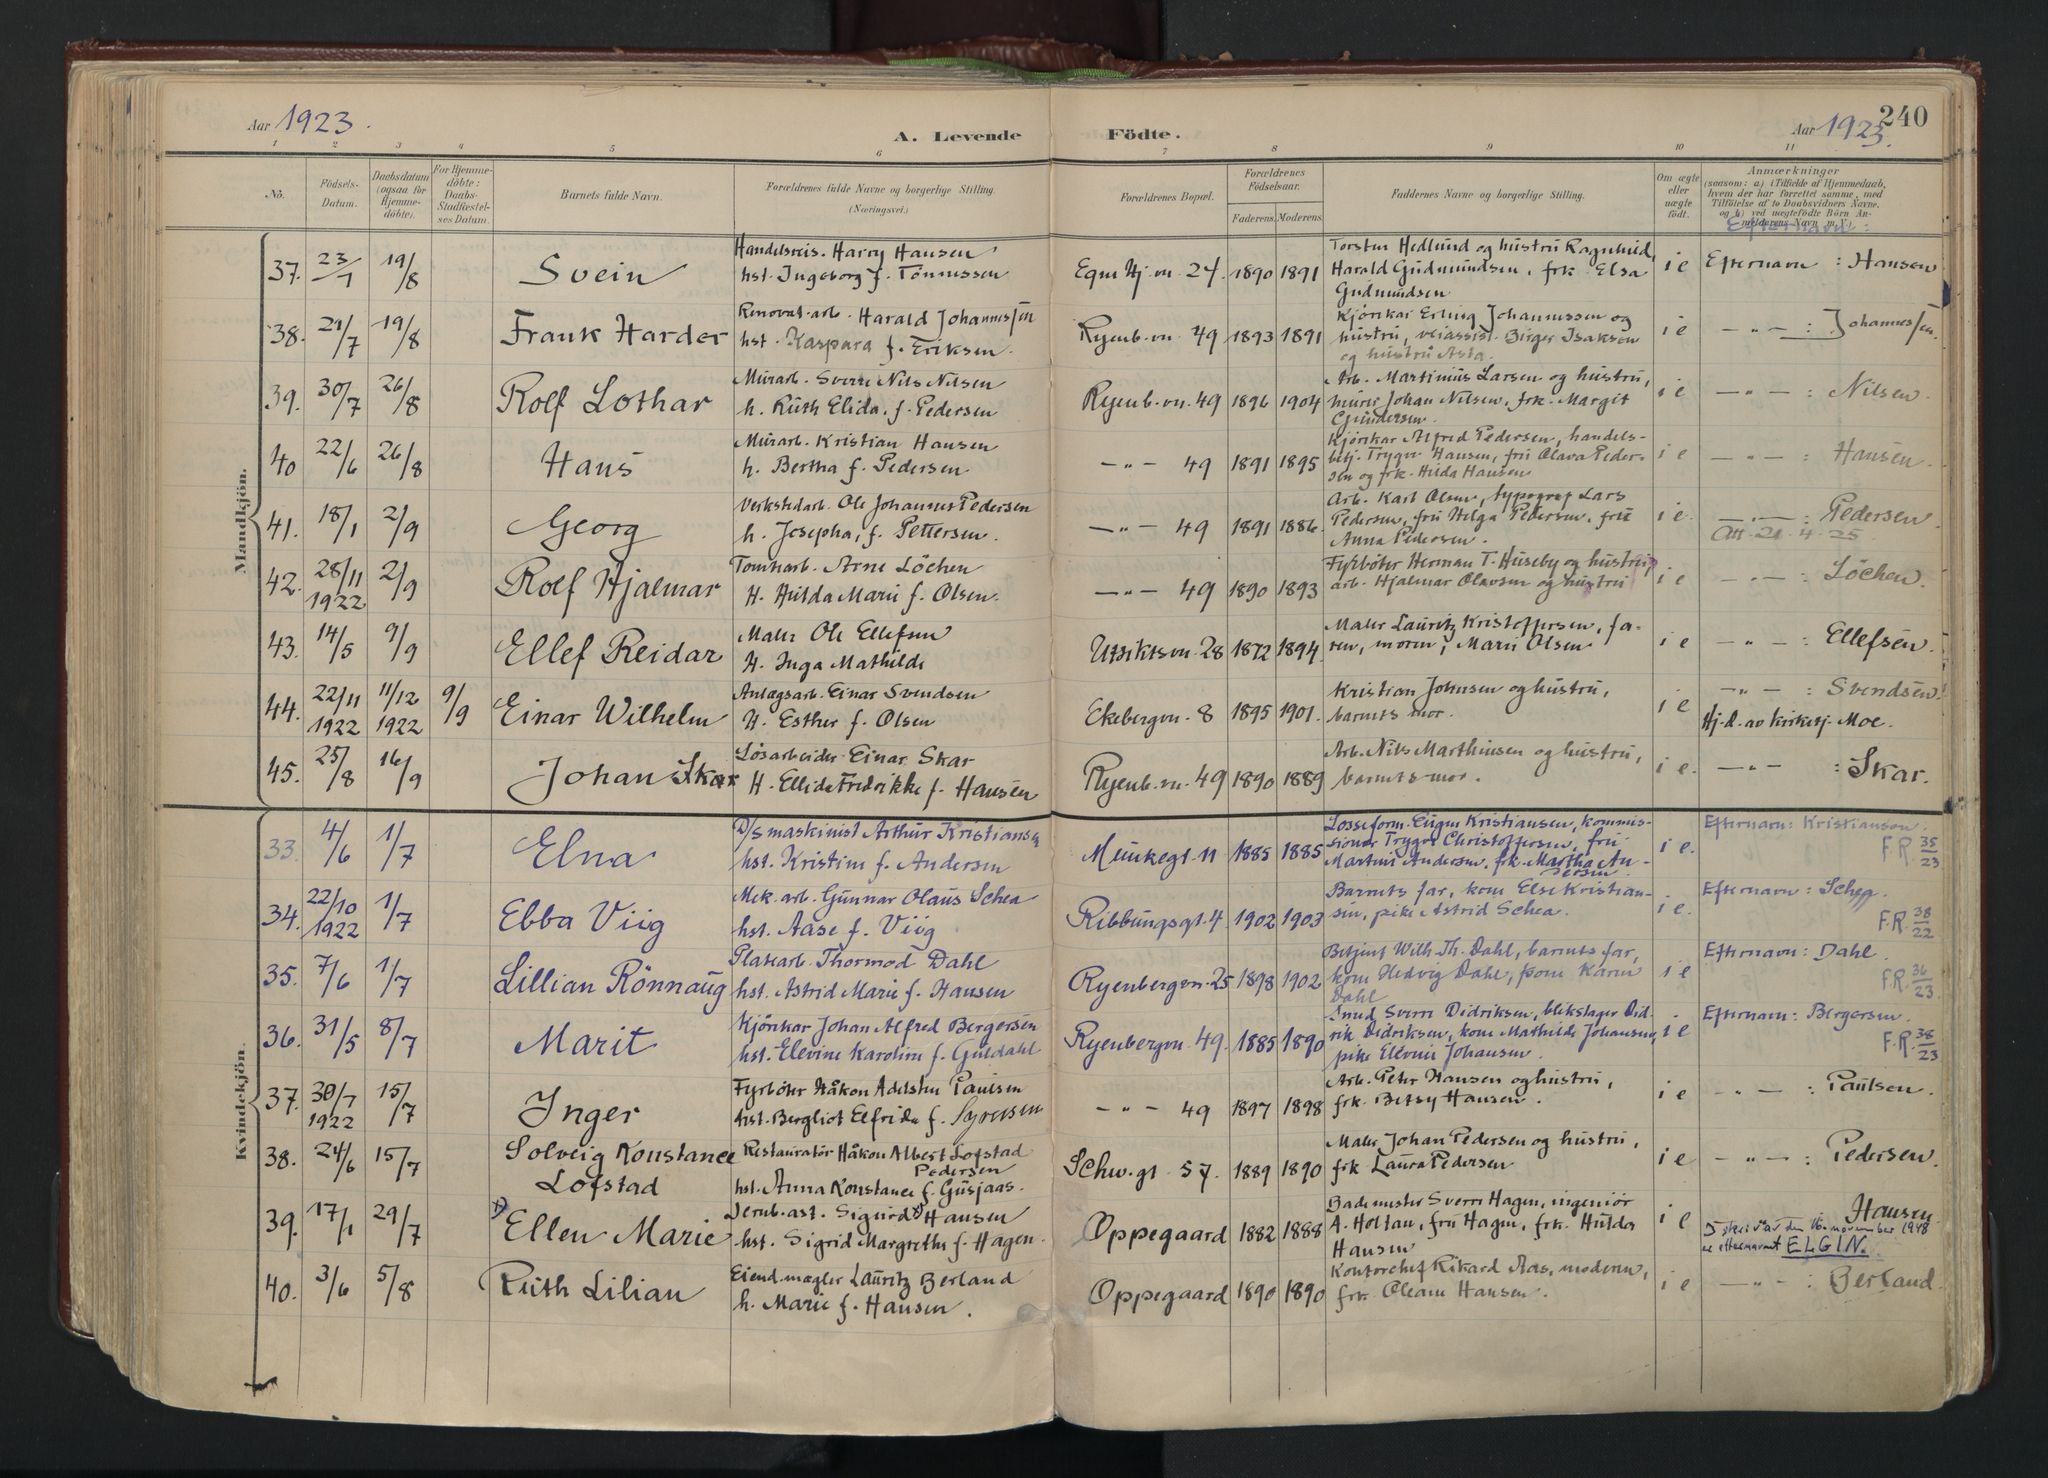 Aar 1923.
A. Levende Födte.
Aar 1923.
240
1 2 3 4 5 6 7 8 9 10 11
No.
Födsels-
Datum.
Daabsdatum
(ogsaa for
Hjemme-
döbte).
For Hjemme-
döbte:
Daabs-
Stadfæstel-
ses Datum.
Barnets fulde Navn.
Forældrenes fulde Navne og borgerlige Stilling.
(Næringsvei.)
Forældrenes Bopæl.
Forældrenes
Födselsaar.
Faderens. Moderens.
Faddernes Navne og borgerlige Stilling.
Om ægte
eller
uægte
födt.
Anmærkninger
(saasom: a) i Tilfælde af Hjemmedaab,
hvem der har forrettet samme, med
Tilföielse af to Daabsvidners Navne,
og b) ved uægtefödte Börn An-
melderens Navn m. V.)
Efternavn:
Mandkjön.
37. 23/7 19/8 Svein
Handelsreis. Harry Hansen
hst. Ingeborg f. Tönnessen
24. 1890 1891
Torsten Hedlund og hustru Ragnhild,
Harald Gudmundsen, frk. Elsa
Gudmundsen
i e Efternavn : Hansen
38. 21/7 19/8 Frank Harder
Renovat. arb. Harald Johannessen
hst. Kaspara f. Eriksen.
Ryenb.vn. 49 1893 1891
Kjörekar Erling Johannessen og
hustru, veiassist. Birger Isaksen
og hustru Asta.
i e —"— : Johannessen.
39. 30/7 26/8 Rolf Lothar
Murarb. Sverre Nils Nilsen
h. Ruth Elida, f. Pedersen
Ryenb.vn. 49 1896 1904
Arb. Martinius Larsen og hustru,
murer Johan Nilsen, frk. Margit
Gundersen.
i e —"— : Nilsen.
40 22/6 26/8 Hans
Murarb. Kristian Hansen
h. Bertha f. Pedersen
—"— 49 1891 1895
Kjörekar Alfred Pedersen, handels-
betj. Trygve Hansen, fru Olava Peder-
sen og frk. Hilda Hansen
i e —"— : Hansen.
41. 18/1 2/9 Georg
Verkstedarb. Ole Johannes Pedersen
h. Josepha, f. Pettersen.
—"— 49 1891 1886.
Arb. Karl Olsen, typograf Lars
Pedersen, fru Helga Pedersen, fru
Anna Pedersen.
i e. —"— : Pedersen.
Att. 21.4.25.
42. 28/11 1922 2/9 Rolf Hjalmar
Tomtearb. Arne Löchen
H. Hulda Marie f. Olsen.
—"— 49 1890 1893
Fyrböter Herman T. Huseby og hustru,
arb. Hjalmar Olavsen og hustru
i e —"— : Löchen.
43. 14/5 9/9 Ellef Reidar
Maler Ole Ellefsen
H. Inga Mathilde
Utsiktsvn. 28 1872 1894.
Maler Lauritz Kristoffersen, fa-
ren, moren, Marie Olsen
i e —"— : Ellefsen.
44. 22/11 1922 11/12 1922 9/9 Einar Wilhelm
Anlægsarb. Einar Svendsen
H. Esther f. Olsen
Ekebergvn. 8 1895 1901.
Kristian Johnsen og hustru,
barnets mor.
i e —"— : Svendsen.
Hj. d. av kirketj. Moe.
45. 25/8 16/9 Johan Skar
Lösarbeider Einar Skar
H. Ellida Fredrikke f. Hansen
Ryenb.vn. 49 1890 1889
Arb. Nils Marthinsen og hustru,
barnets mor.
i e. —"— : Skar.
Kvindekjön.
33. 4/6 1/7 Elna
D/s maskinist Arthur Kristiansen
hst. Kristine f. Andersen
Munkegt. 11 1885 1885
Losseform. Eugen Kristiansen, kommis-
sionær Trygve Christoffersen, fru
Martine Andersen, frk. Martha An-
dersen
i e. Efternavn: Kristiansen.
F.R. 35/23
34. 22/10 1922 1/7 Ebba Viig
Mek. arb. Gunnar Olaus Schea
hst. Aase f. Viig
Ribbungsgt. 4. 1902 1903
Barnets far, kone Else Kristian-
sen, pike Astrid Schea.
i e. Efternavn: Schea.
F.R. 38/22
35. 7/6 1/7 Lillian Rönnaug
Platearb. Thormod Dahl
hst. Astrid Marie f. Hansen
Ryenbergvn. 25 1898 1902
Betjent Wilh. Th. Dahl, barnets far,
kone Hedvig Dahl, kone Karen
Dahl
i e Efternavn: Dahl.
F.R. 36/23.
36. 31/5 8/7 Marit
Kjörekar Johan Alfred Bergersen
hst. Elevine Karoline f. Guldahl
Ryenbergvn. 49. 1885 1890
Smed Sverre Didriksen, blikslager Did-
rik Didriksen, kone Mathilde Johansen,
pike Elevine Johansen.
i e Efternavn: Bergersen.
F.R. 38/23
37. 30/7 1922 15/7 Inger
Fyrböter Håkon Adelsten Paulsen
hst. Bergliot Elfrida f. Syversen
—"— 49 1897 1898
Arb. Peter Hansen og hustru,
frk. Betsy Hansen.
i e —"— : Paulsen.
38. 24/6 15/7 Solveig Konstance
Lofstad
Restauratör Håkon Albert Lofstad
Pedersen
hst. Anna Konstance f. Gusjaas.
Schw.gt 57. 1889 1890
Maler Johan Pedersen og hustru,
frk Laura Pedersen
i e —"— : Pedersen.
39. 17/1 29/7 Ellen Marie
Jernb.ast. Sigurd Hansen
hst. Sigrid Margrethe f. Hagen.
Oppegaard 1882 1888
Bademester Sverre Hagen, ingeniör
A. Holtan, fru Hagen, frk. Hulda
Hansen
i e Hansen
av den 16. november 1948
ELGIN.
40. 3/6 5/8 Ruth Lilian
Eiend.mægler Lauritz Berland
h. Marie f. Hansen.
Oppegaard 1890 1890
Kontorchef Rikard Aas, moderen,
frk. Oleane Hansen.
i e —"— : Berland.